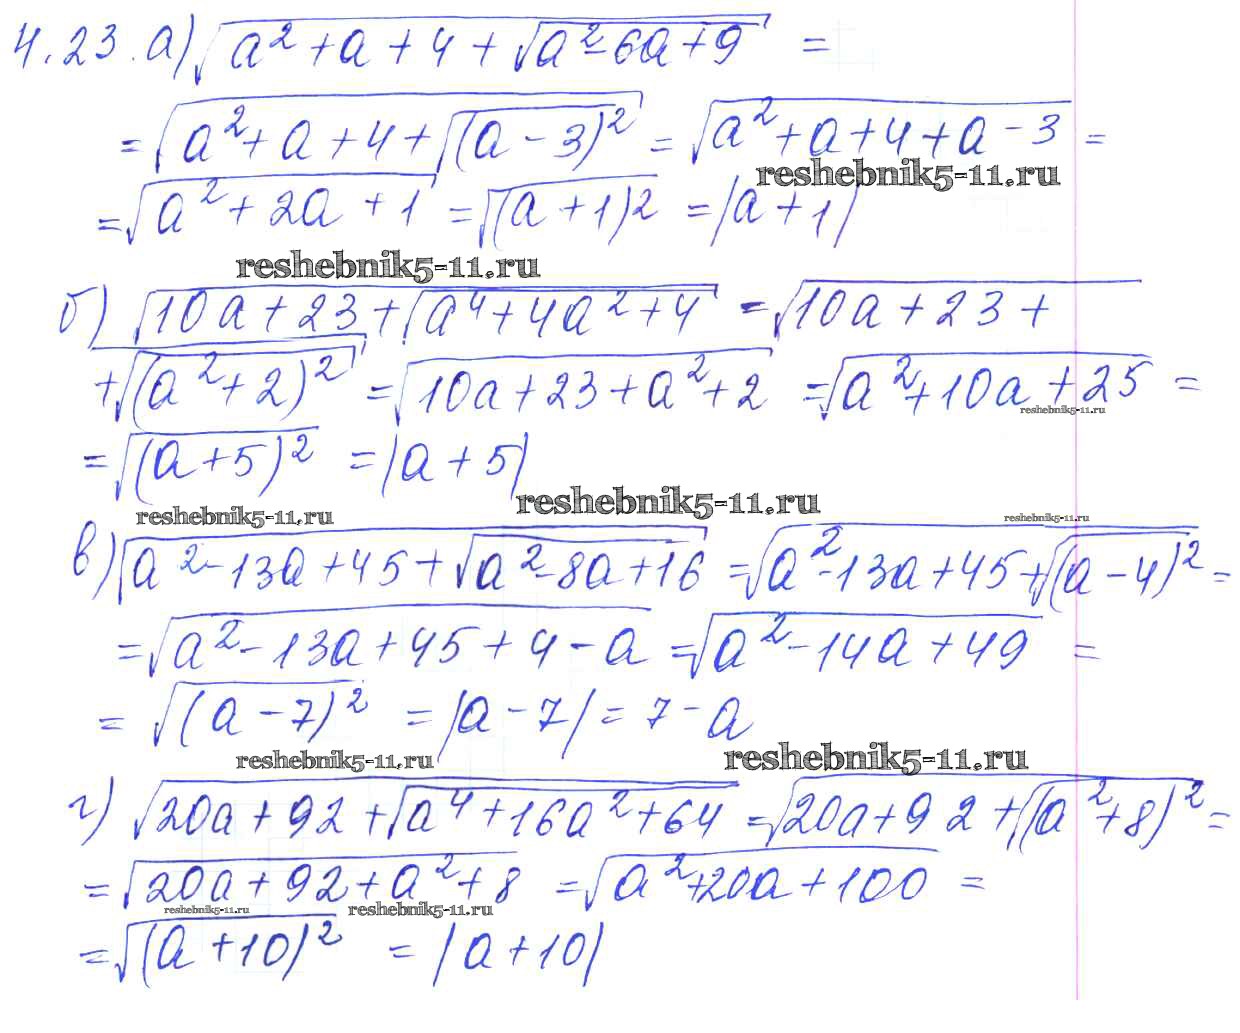 4.23. а) √(a² + a + 4 + √(a² - 6a + 9)) =
= √(a² + a + 4 + √((a - 3)²)) = √(a² + a + 4 + a - 3) =
reshebnik5-11.ru
= √(a² + 2a + 1) = √((a + 1)²) = |a + 1|
reshebnik5-11.ru
б) √(10a + 23 + √(a⁴ + 4a² + 4)) = √(10a + 23 +
+ √((a² + 2)²)) = √(10a + 23 + a² + 2) = √(a² + 10a + 25) =
reshebnik5-11.ru
= √((a + 5)²) = |a + 5|
reshebnik5-11.ru
reshebnik5-11.ru reshebnik5-11.ru
в) √(a² - 13a + 45 + √(a² - 8a + 16)) = √(a² - 13a + 45 + √((a - 4)²)) =
= √(a² - 13a + 45 + 4 - a) = √(a² - 14a + 49) =
= √((a - 7)²) = |a - 7| = 7 - a
reshebnik5-11.ru reshebnik5-11.ru
г) √(20a + 92 + √(a⁴ + 16a² + 64)) = √(20a + 92 + √((a² + 8)²)) =
= √(20a + 92 + a² + 8) = √(a² + 20a + 100) =
reshebnik5-11.ru reshebnik5-11.ru
= √((a + 10)²) = |a + 10|